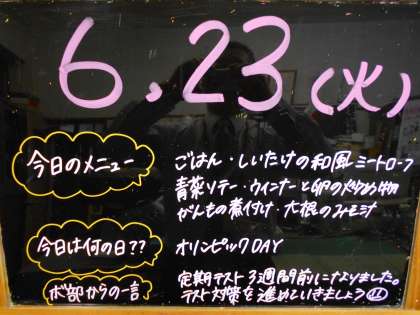 6.23(火)
今日のメニュー
ごはん・しいたけの和風ミートローフ
青菜ソテー・ウィンナーと卵の炒め物
がんもの煮付け・大根のみそ汁
今日は何の日??
オリンピックDAY
ボ部からの一言
定期テスト3週間前になりました。
テスト対策を進めていきましょう